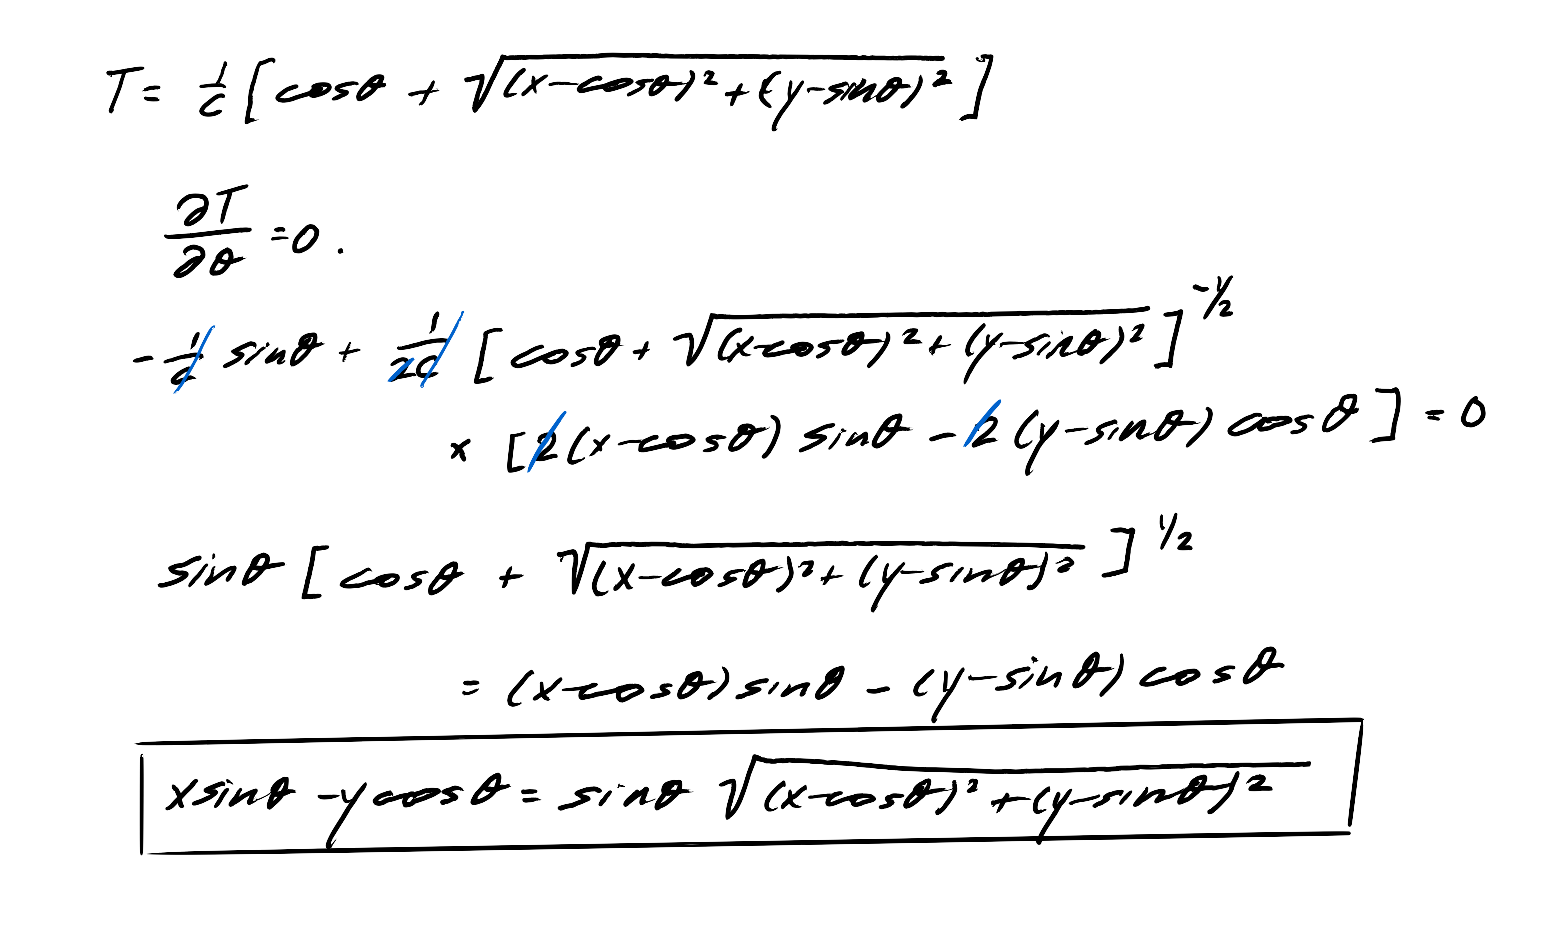 T = 1/c [cosθ + √((x-cosθ)² + (y-sinθ)²)]
∂T/∂θ = 0.
-1/c sinθ + 1/2c [cosθ + √((x-cosθ)² + (y-sinθ)²)]^(-1/2)
× [2(x-cosθ) sinθ - 2(y-sinθ) cosθ] = 0
sinθ [cosθ + √((x-cosθ)² + (y-sinθ)²)]^(1/2)
= (x-cosθ) sinθ - (y-sinθ) cosθ
x sinθ - y cosθ = sinθ √((x-cosθ)² + (y-sinθ)²)